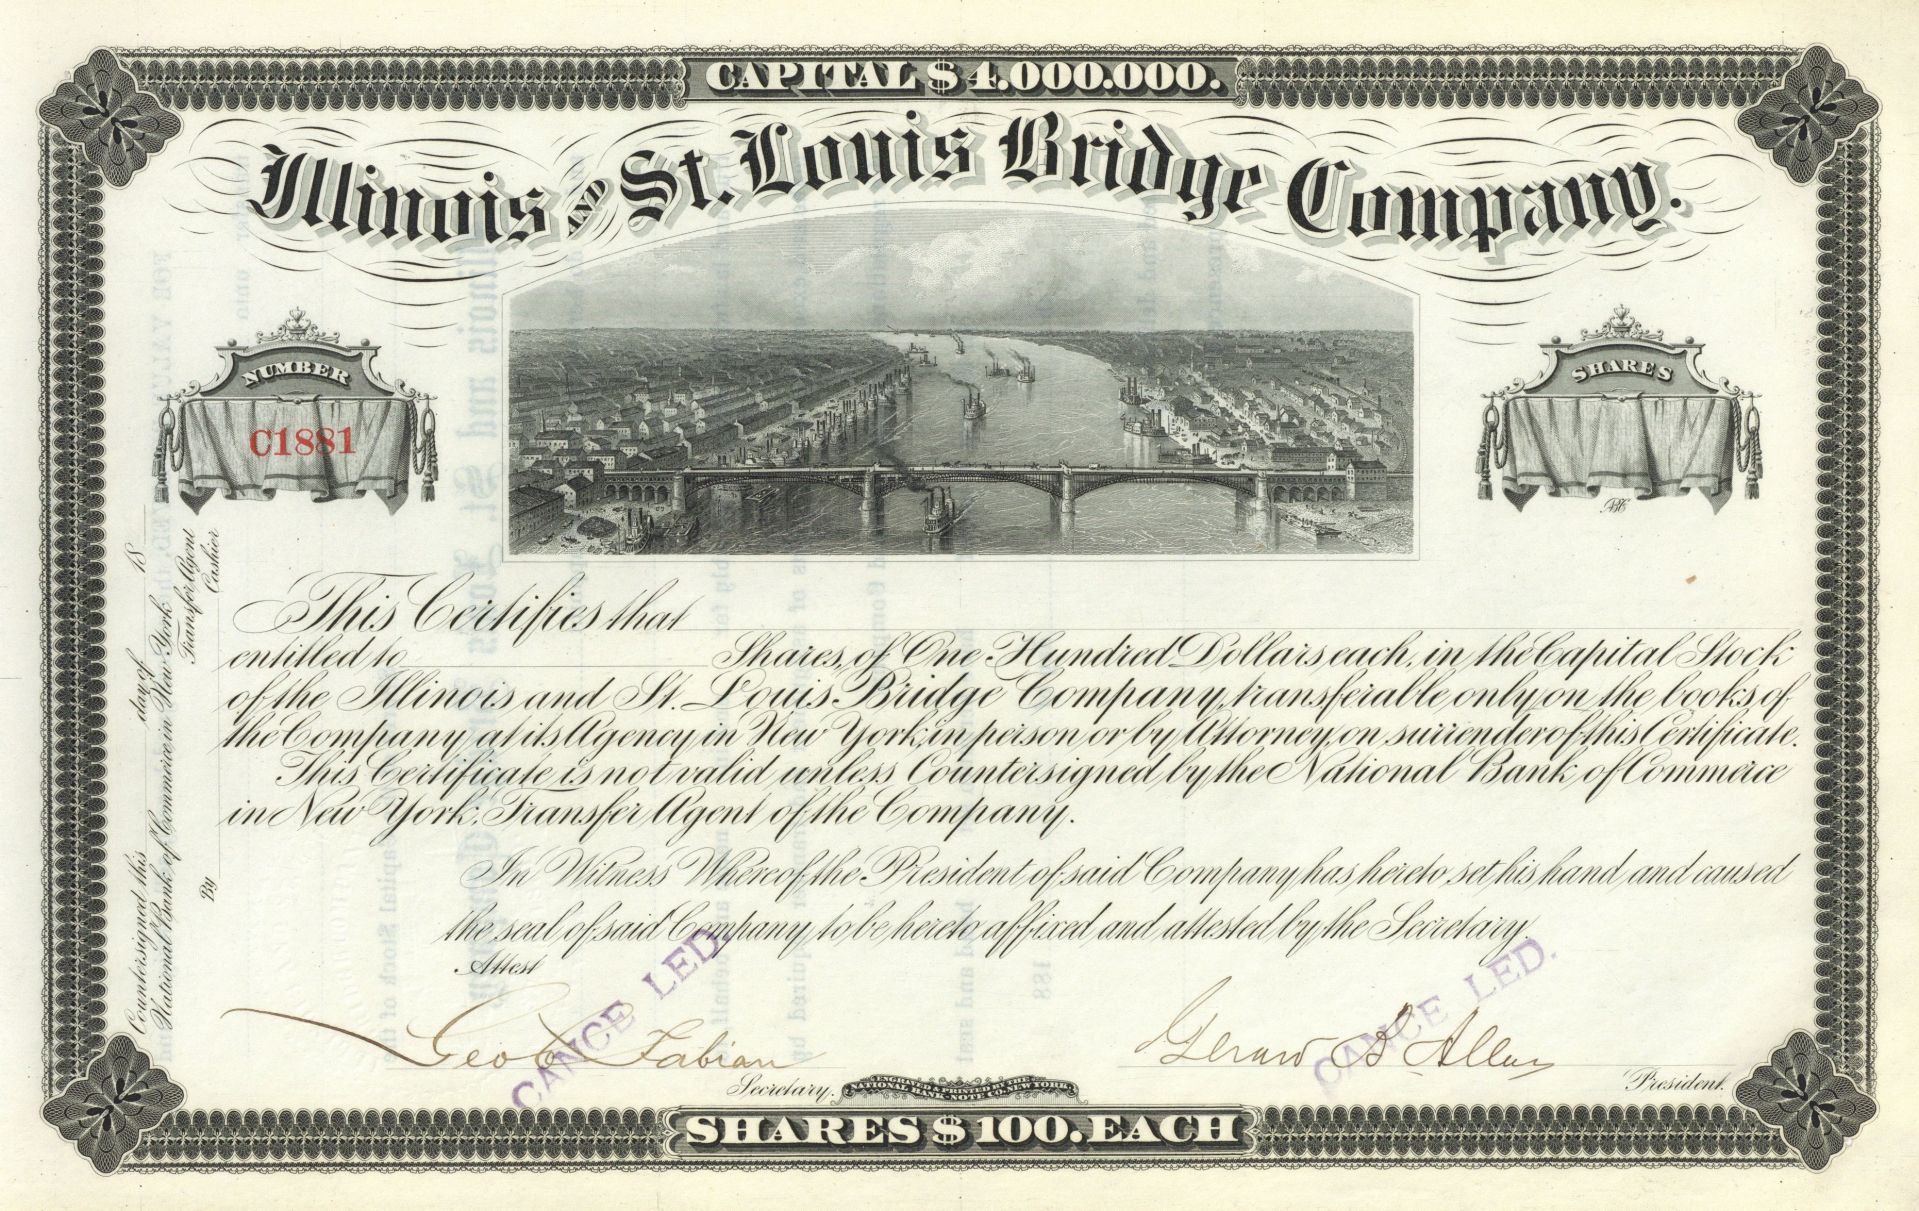 CAPITAL $4.000.000.
Illinois AND St. Louis Bridge Company.
NUMBER
C1881
SHARES
This Certifies that
entitled to Shares, of One Hundred Dollars each, in the Capital Stock
of the Illinois and St. Louis Bridge Company, transferable only on the books of
the Company, at its Agency in New York, in person or by Attorney, on surrender of this Certificate.
This Certificate is not valid unless Countersigned by the National Bank of Commerce
in New York, Transfer Agent of the Company.
In Witness Whereof the President of said Company has hereto set his hand and caused
the seal of said Company to be hereto affixed and attested by the Secretary.
Attest
Geo C Fabian
Secretary.
Gerard B Allen
President.
CANCELLED.
CANCELLED.
ENGRAVED & PRINTED BY THE
NATIONAL BANK-NOTE CO. NEW YORK.
SHARES $100. EACH
Countersigned this day of 18
National Bank of Commerce in New York
Transfer Agent
By Cashier